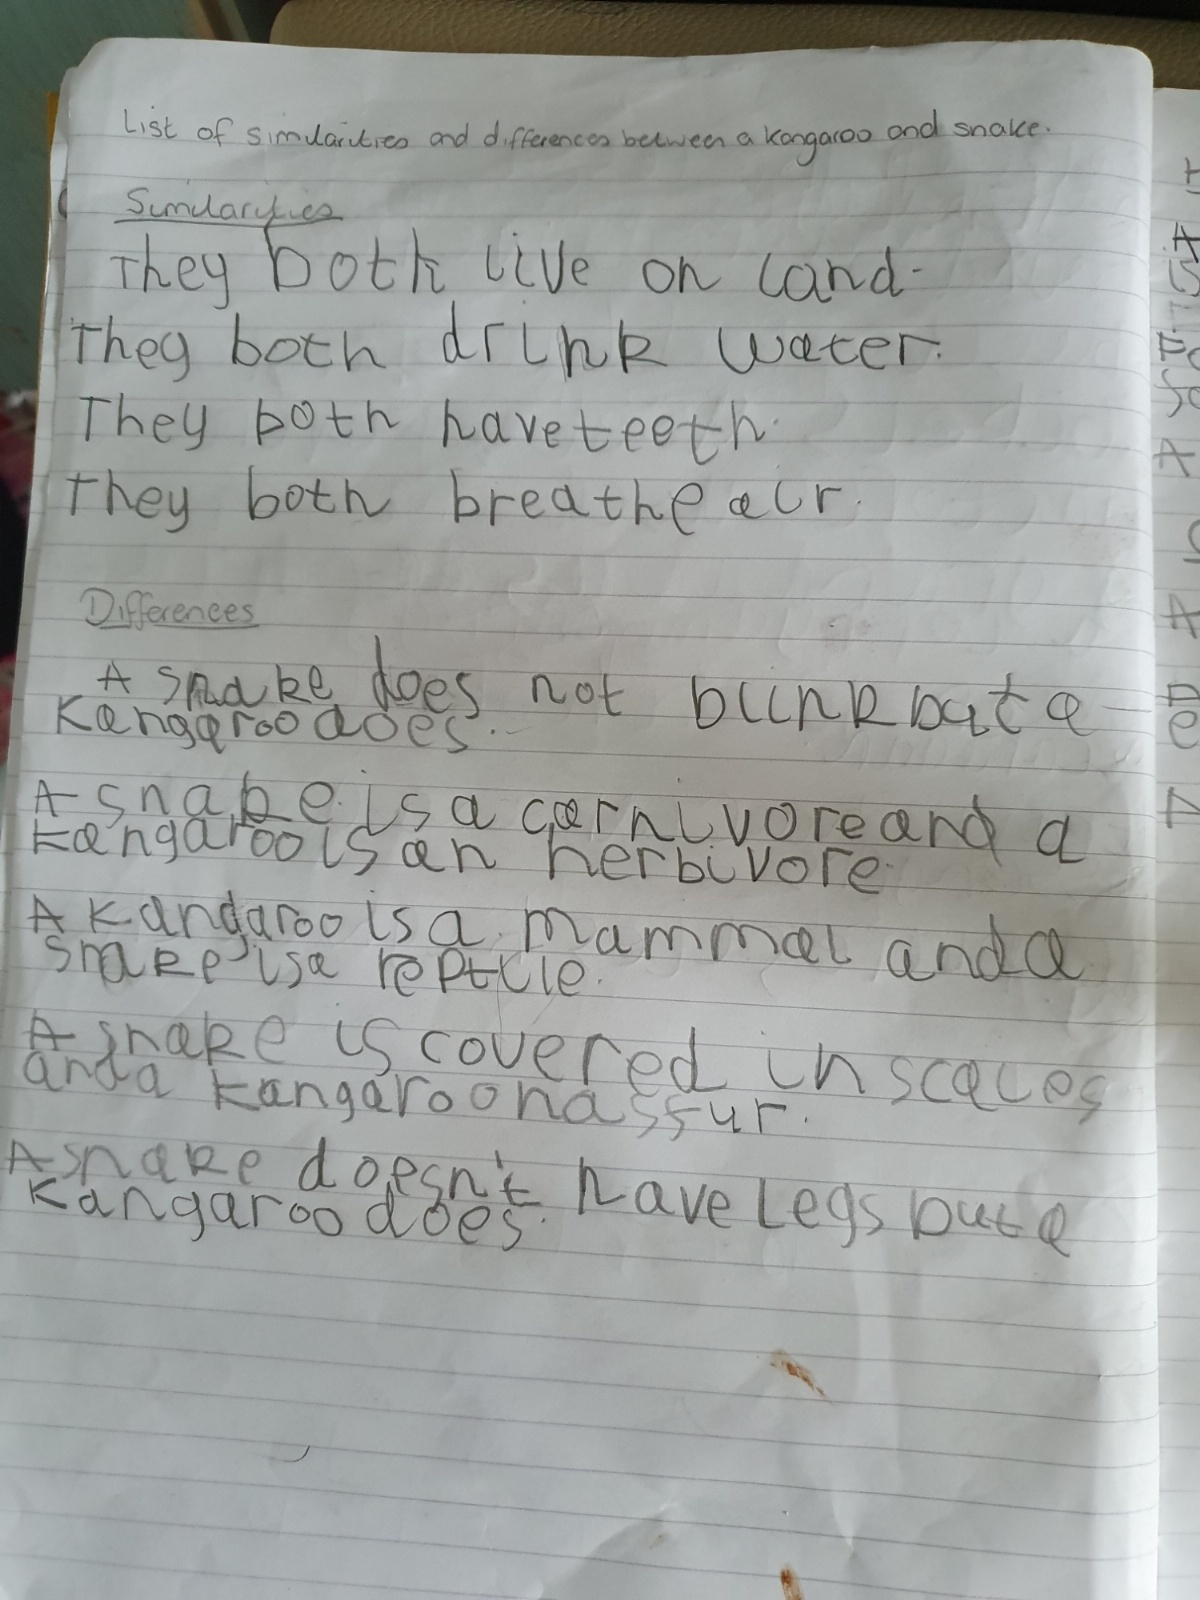 List of similarities and differences between a kangaroo and snake.
Similarities
They both live on land.
They both drink water.
They both have teeth.
They both breathe air.
Differences
A snake does not blink but a
kangaroo does.
A snake is a carnivore and a
kangaroo is an herbivore.
A kangaroo is a mammal and a
snake is a reptile.
A snake is covered in scales
and a kangaroo has fur.
A snake doesn't have legs but a
kangaroo does.